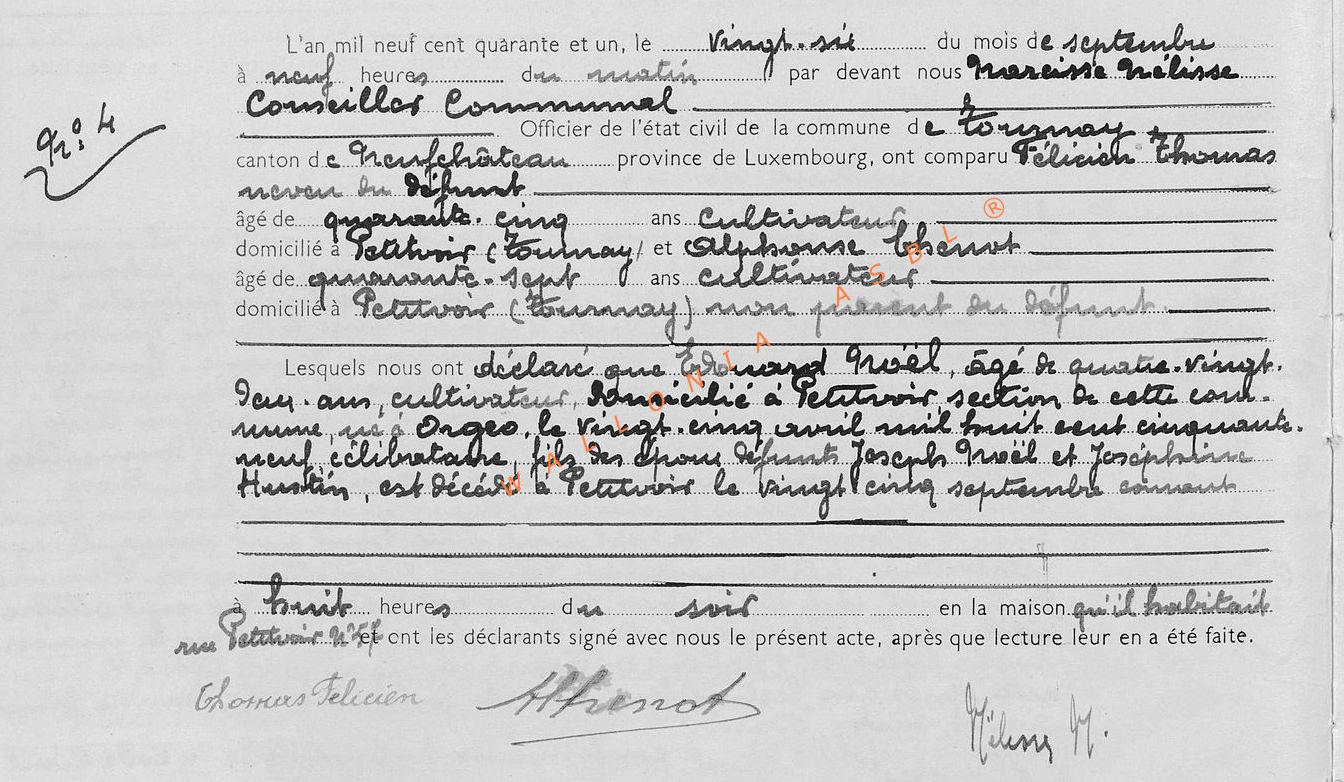 L'an mil neuf cent quarante et un, le vingt-six du mois de septembre
à neuf heures du matin par devant nous Narcisse Nélisse
Conseiller Communal
Officier de l'état civil de la commune de Tournay,
N° 4
canton de Neufchâteau province de Luxembourg, ont comparu Félicien Thomas
neveu du défunt
âgé de quarante-cinq ans cultivateur
domicilié à Petitvoir (Tournay) et Alphonse Thenot
âgé de quarante-sept ans cultivateur
domicilié à Petitvoir (Tournay) non parent du défunt.
Lesquels nous ont déclaré que Edouard Noël, âgé de quatre-vingt-
deux ans, cultivateur, domicilié à Petitvoir section de cette com-
mune, né à Orgeo, le vingt-cinq avril mil huit cent cinquante-
neuf, célibataire, fils des époux défunts Joseph Noël et Joséphine
Hustin, est décédé à Petitvoir le vingt cinq septembre courant
WALLONIA ASBL ®
à huit heures du soir en la maison qu'il habitait
rue Petitvoir N° et ont les déclarants signé avec nous le présent acte, après que lecture leur en a été faite.
Thomas Felicien AThenot Nélisse N.